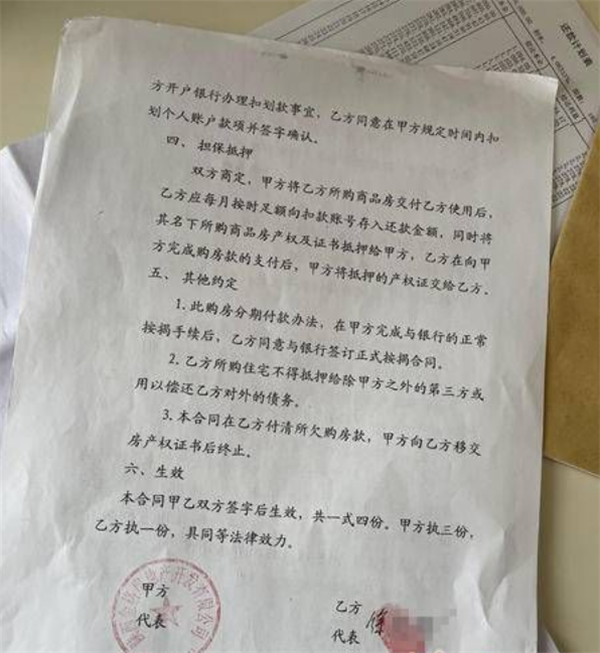 还款计划表
方开户银行办理扣划款事宜，乙方同意在甲方规定时间内扣
划个人账户款项并签字确认．
四、担保抵押
双方商定，甲方将乙方所购商品房交付乙方使用后，
乙方应每月按时足额向扣款账号存入还款金额，同时将
其名下所购商品房产权及证书抵押给甲方，乙方在向甲
方完成购房款的支付后，甲方将抵押的产权证交给乙方．
五、其他约定
1. 此购房分期付款办法，在甲方完成与银行的正常
按揭手续后，乙方同意与银行签订正式按揭合同。
2. 乙方所购住宅不得抵押给除甲方之外的第三方或
用以偿还乙方对外的债务。
3. 本合同在乙方付清所欠购房款，甲方向乙方移交
房产权证书后终止。
六、生效
本合同甲乙双方签字后生效，共一式四份。甲方执三份，
乙方执一份，具同等法律效力。
甲方
代表
房地产开发有限公司
乙方 徐
代表